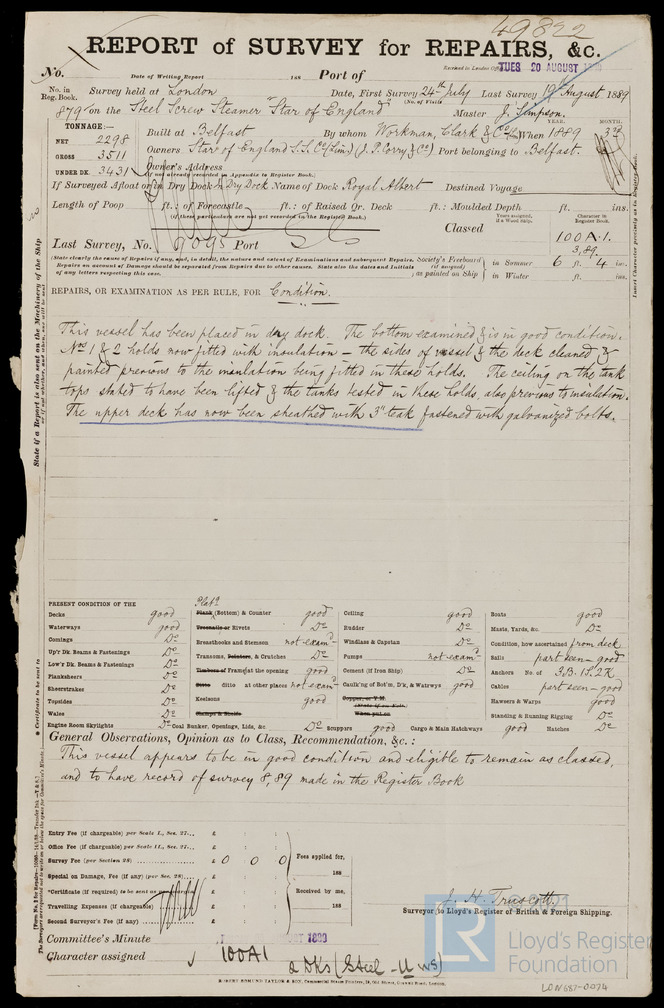 49822
REPORT of SURVEY for REPAIRS, &c.
No. Date of Writing Report 188 Port of Received in London Office TUES 20 AUGUST
No. in Reg. Book. Survey held at London Date, First Survey 24th July Last Survey 19th August 1889
(No. of Visits
879 on the Steel Screw Steamer "Star of England" Master J. Simpson.
TONNAGE:—
NET 2298
GROSS 3511
UNDER DK. 3431
YEAR. MONTH.
Built at Belfast By whom Workman, Clark & Co. When 1889 3
Owners Star of England S.S. Co (Lim) (J. P. Corry & Co) Port belonging to Belfast.
Owner's Address
(if not already recorded in Appendix to Register Book.)
If Surveyed Afloat or in Dry Dock In Dry Dock Name of Dock Royal Albert Destined Voyage
Length of Poop ft.: of Forecastle ft.: of Raised Qr. Deck ft.: Moulded Depth ft. ins.
(if these particulars are not yet recorded in the Register Book.)
Classed
Years assigned, if a Wood Ship.
Character in Register Book.
100 A.1.
3,89.
Last Survey, No. Port
(State clearly the cause of Repairs if any, and, in detail, the nature and extent of Examinations and subsequent Repairs.
Repairs on account of Damage should be separated from Repairs due to other causes. State also the dates and Initials
of any letters respecting this case.
Society's Freeboard (if assigned) as painted on Ship
in Summer 6 ft. 4 ins.
in Winter ft. ins.
REPAIRS, OR EXAMINATION AS PER RULE, FOR Condition.
This vessel has been placed in dry dock. The bottom examined & is in good condition.
Nos 1 & 2 holds now fitted with insulation — the sides of vessel & the deck cleaned &
painted previous to the insulation being fitted in these holds. The ceiling on the tank
tops stated to have been lifted & the tanks tested in these holds, also previous to insulation.
The upper deck has now been sheathed with 3" teak fastened with galvanized bolts.
PRESENT CONDITION OF THE
Decks good
Waterways good
Comings Do
Up'r Dk. Beams & Fastenings Do
Low'r Dk. Beams & Fastenings Do
Planksheers Do
Sheerstrakes Do
Topsides Do
Wales Do
Engine Room Skylights Do
Plat'g
Plank (Bottom) & Counter good
Treenails or Rivets Do
Breasthooks and Stemson not exam'd
Transoms, Pointers, & Crutches Do
Timbers of Frames at the opening good
ditto ditto at other places not exam'd
Keelsons good
Clamps & Shelfs
Coal Bunker, Openings, Lids, &c. Do
Ceiling good
Rudder Do
Windlass & Capstan Do
Pumps not exam'd
Cement (if Iron Ship) Do
Caulk'ng of Bot'm, D'k, & Watrwys good
Copper, or Y.M.
When put on
Scuppers good Cargo & Main Hatchways good Hatches Do
Boats good
Masts, Yards, &c. Do
Condition, how ascertained from deck
Sails part seen — good
Anchors No. of 3,B. 1S. 2K
Cables part seen — good
Hawsers & Warps good
Standing & Running Rigging Do
General Observations, Opinion as to Class, Recommendation, &c.:
This vessel appears to be in good condition and eligible to remain as classed,
and to have record of survey 8,89 made in the Register Book
Entry Fee (if chargeable) per Scale I., Sec. 27... £ : :
Office Fee (if chargeable) per Scale II., Sec. 27... £ : :
Survey Fee (per Section 28) £ 0 0 0
Special on Damage, Fee (if any) (per Sec. 28) £ : :
*Certificate (if required) to be sent as per margin £
Travelling Expenses (if chargeable) £
Second Surveyor's Fee (if any) £
Fees applied for, 188
Received by me, 188
J. H. Truscott.
Surveyor to Lloyd's Register of British & Foreign Shipping.
Committee's Minute AUGUST 1889
Character assigned 100A1
2 Dks (Steel
ROBERT EDMUND TAYLOR & SON, Commercial Steam Printers, 19, Old Street, Goswell Road, London.
LR
Lloyd's Register
Foundation
LON687-0074
State if a Report is also sent on the Machinery of the Ship
* Certificate to be sent to